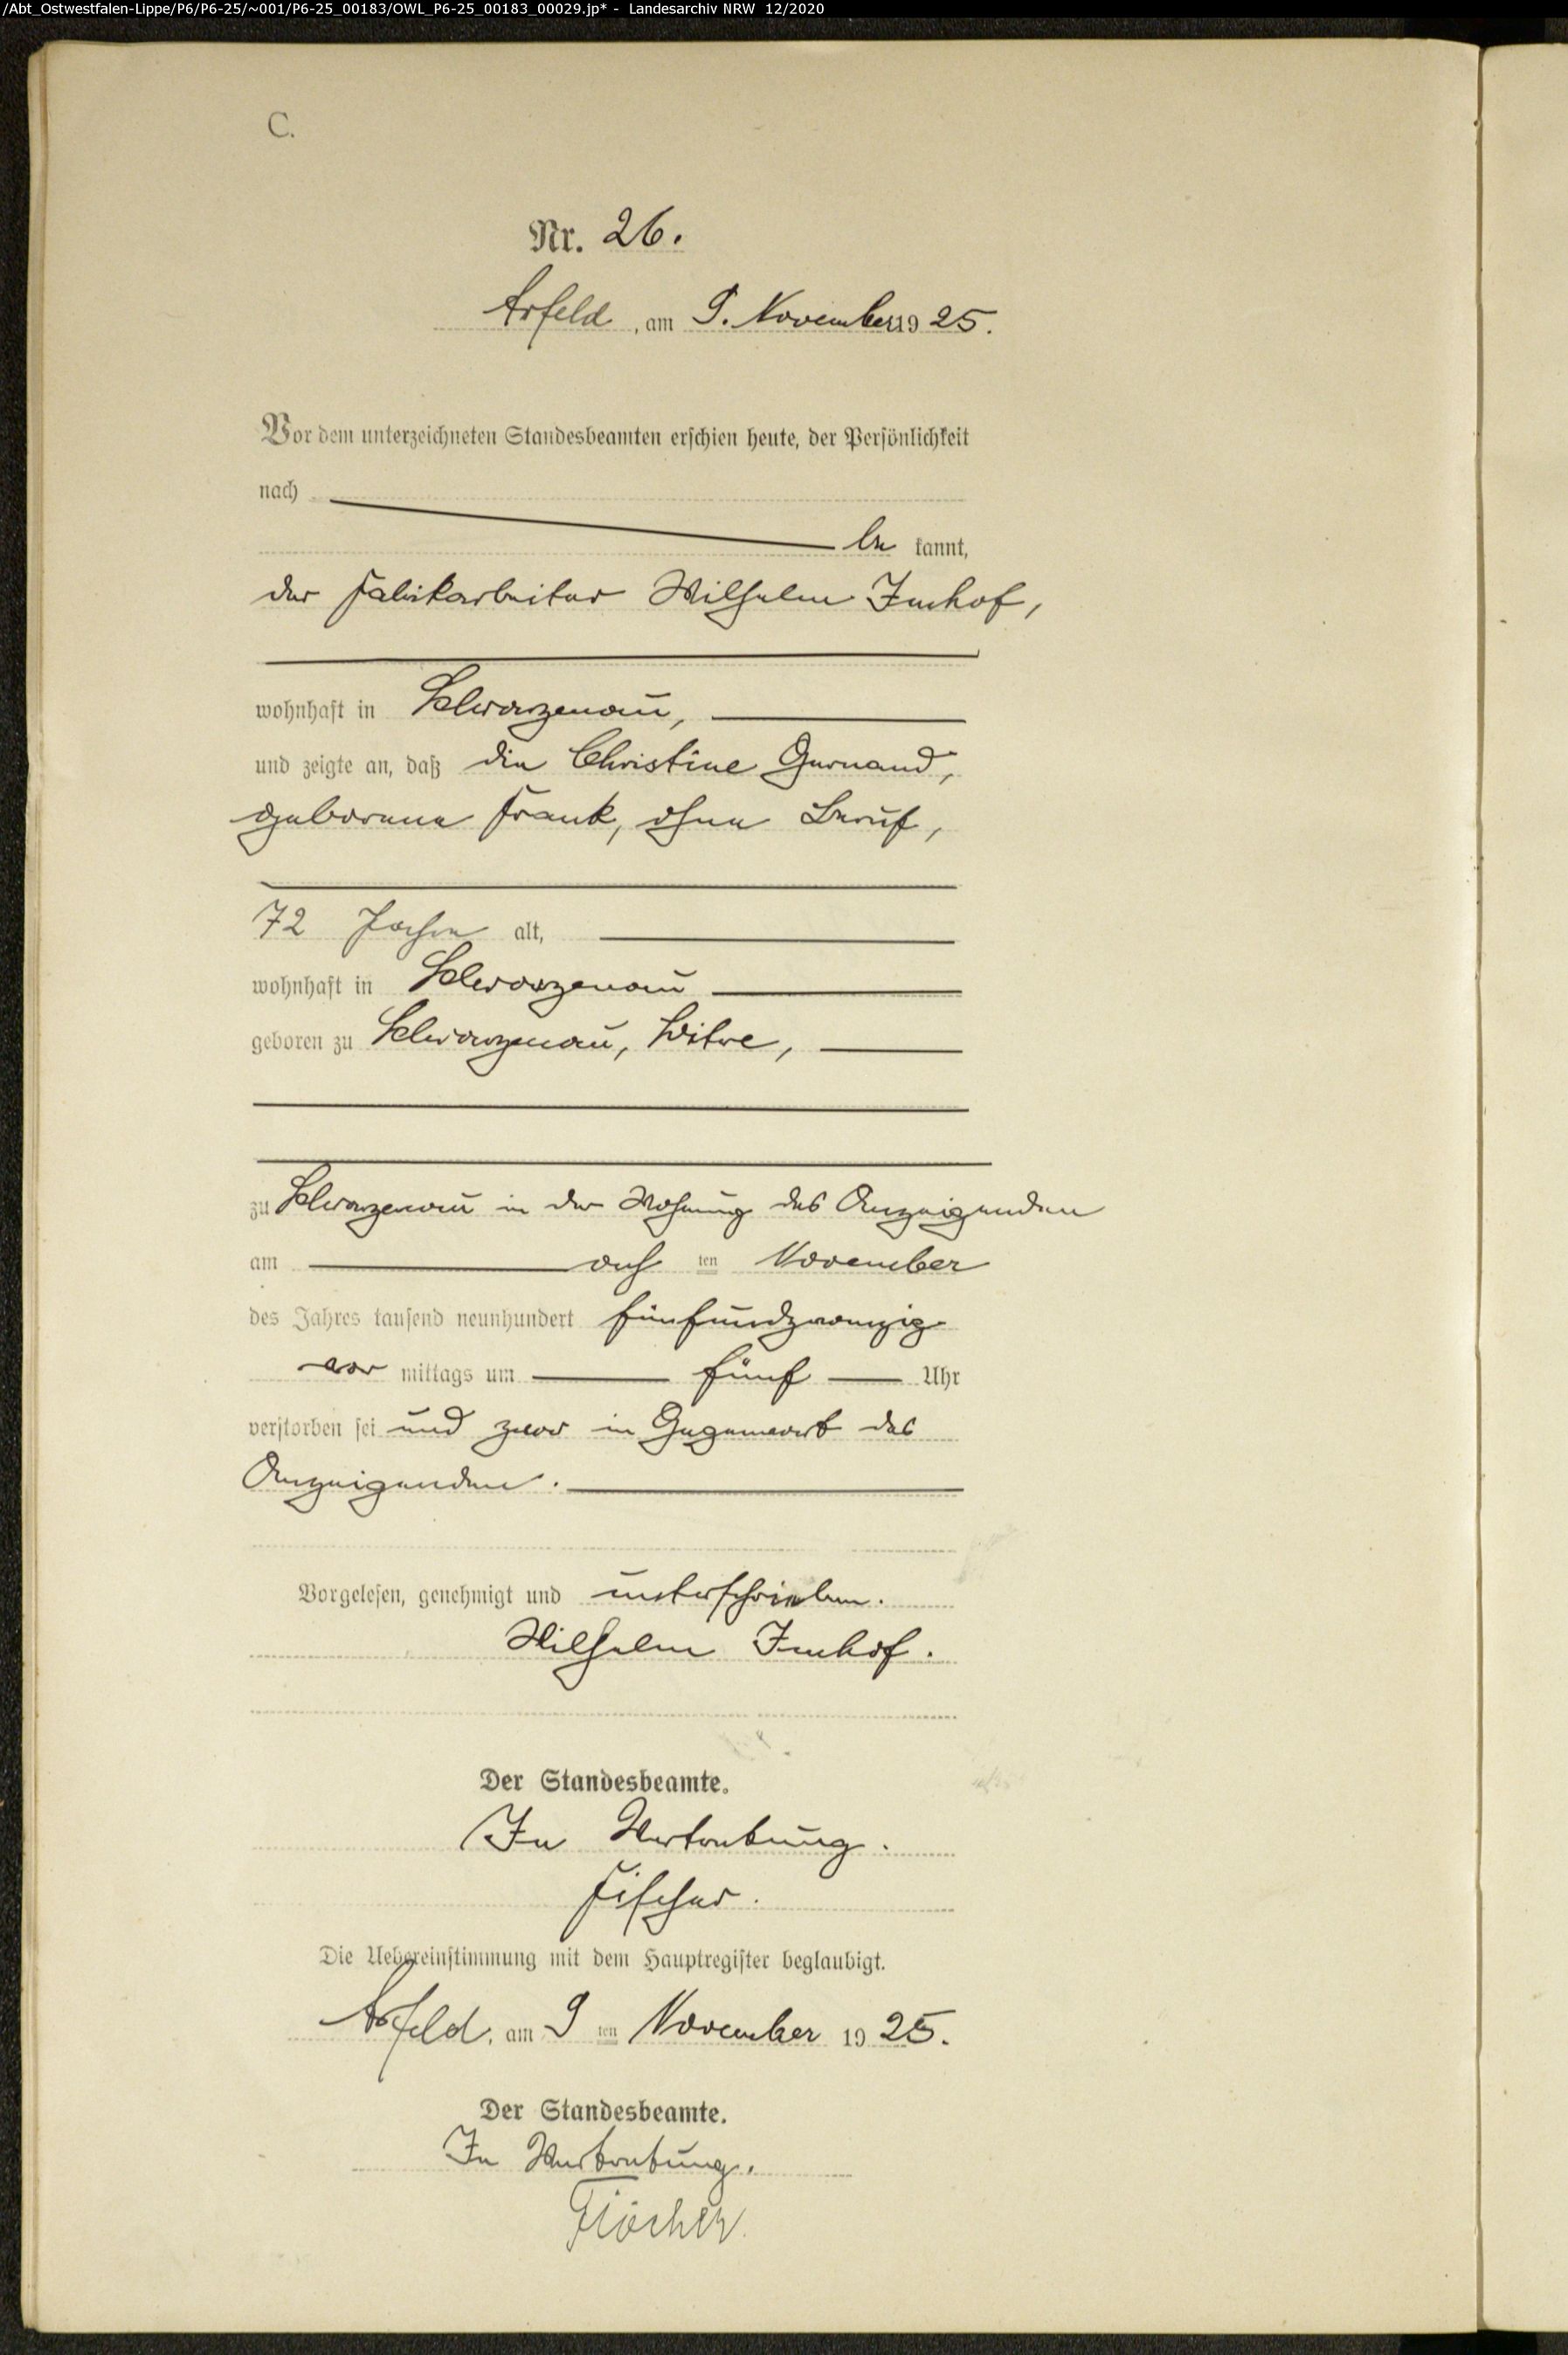 /Abt_Ostwestfalen-Lippe/P6/P6-25/~001/P6-25_00183/OWL_P6-25_00183_00029.jp* - Landesarchiv NRW 12/2020
C.
Nr. 26.
Arfeld, am 9. November 1925.
Vor dem unterzeichneten Standesbeamten erschien heute, der Persönlichkeit
nach
be kannt,
der Fabrikarbeiter Wilhelm Imhof,
wohnhaft in Schwarzenau,
und zeigte an, daß die Christine Gernand,
geborene Frank, ohne Beruf,
72 Jahre alt,
wohnhaft in Schwarzenau
geboren zu Schwarzenau, Witwe,
zu Schwarzenau in der Wohnung des Anzeigenden
am acht ten November
des Jahres tausend neunhundert fünfundzwanzig
vor mittags um fünf Uhr
verstorben sei und zwar in Gegenwart des
Anzeigenden.
Vorgelesen, genehmigt und unterschrieben.
Wilhelm Imhof.
Der Standesbeamte.
In Vertretung.
Fischer.
Die Uebereinstimmung mit dem Hauptregister beglaubigt.
Arfeld, am 9 ten November 1925.
Der Standesbeamte.
In Vertretung.
Fischer.